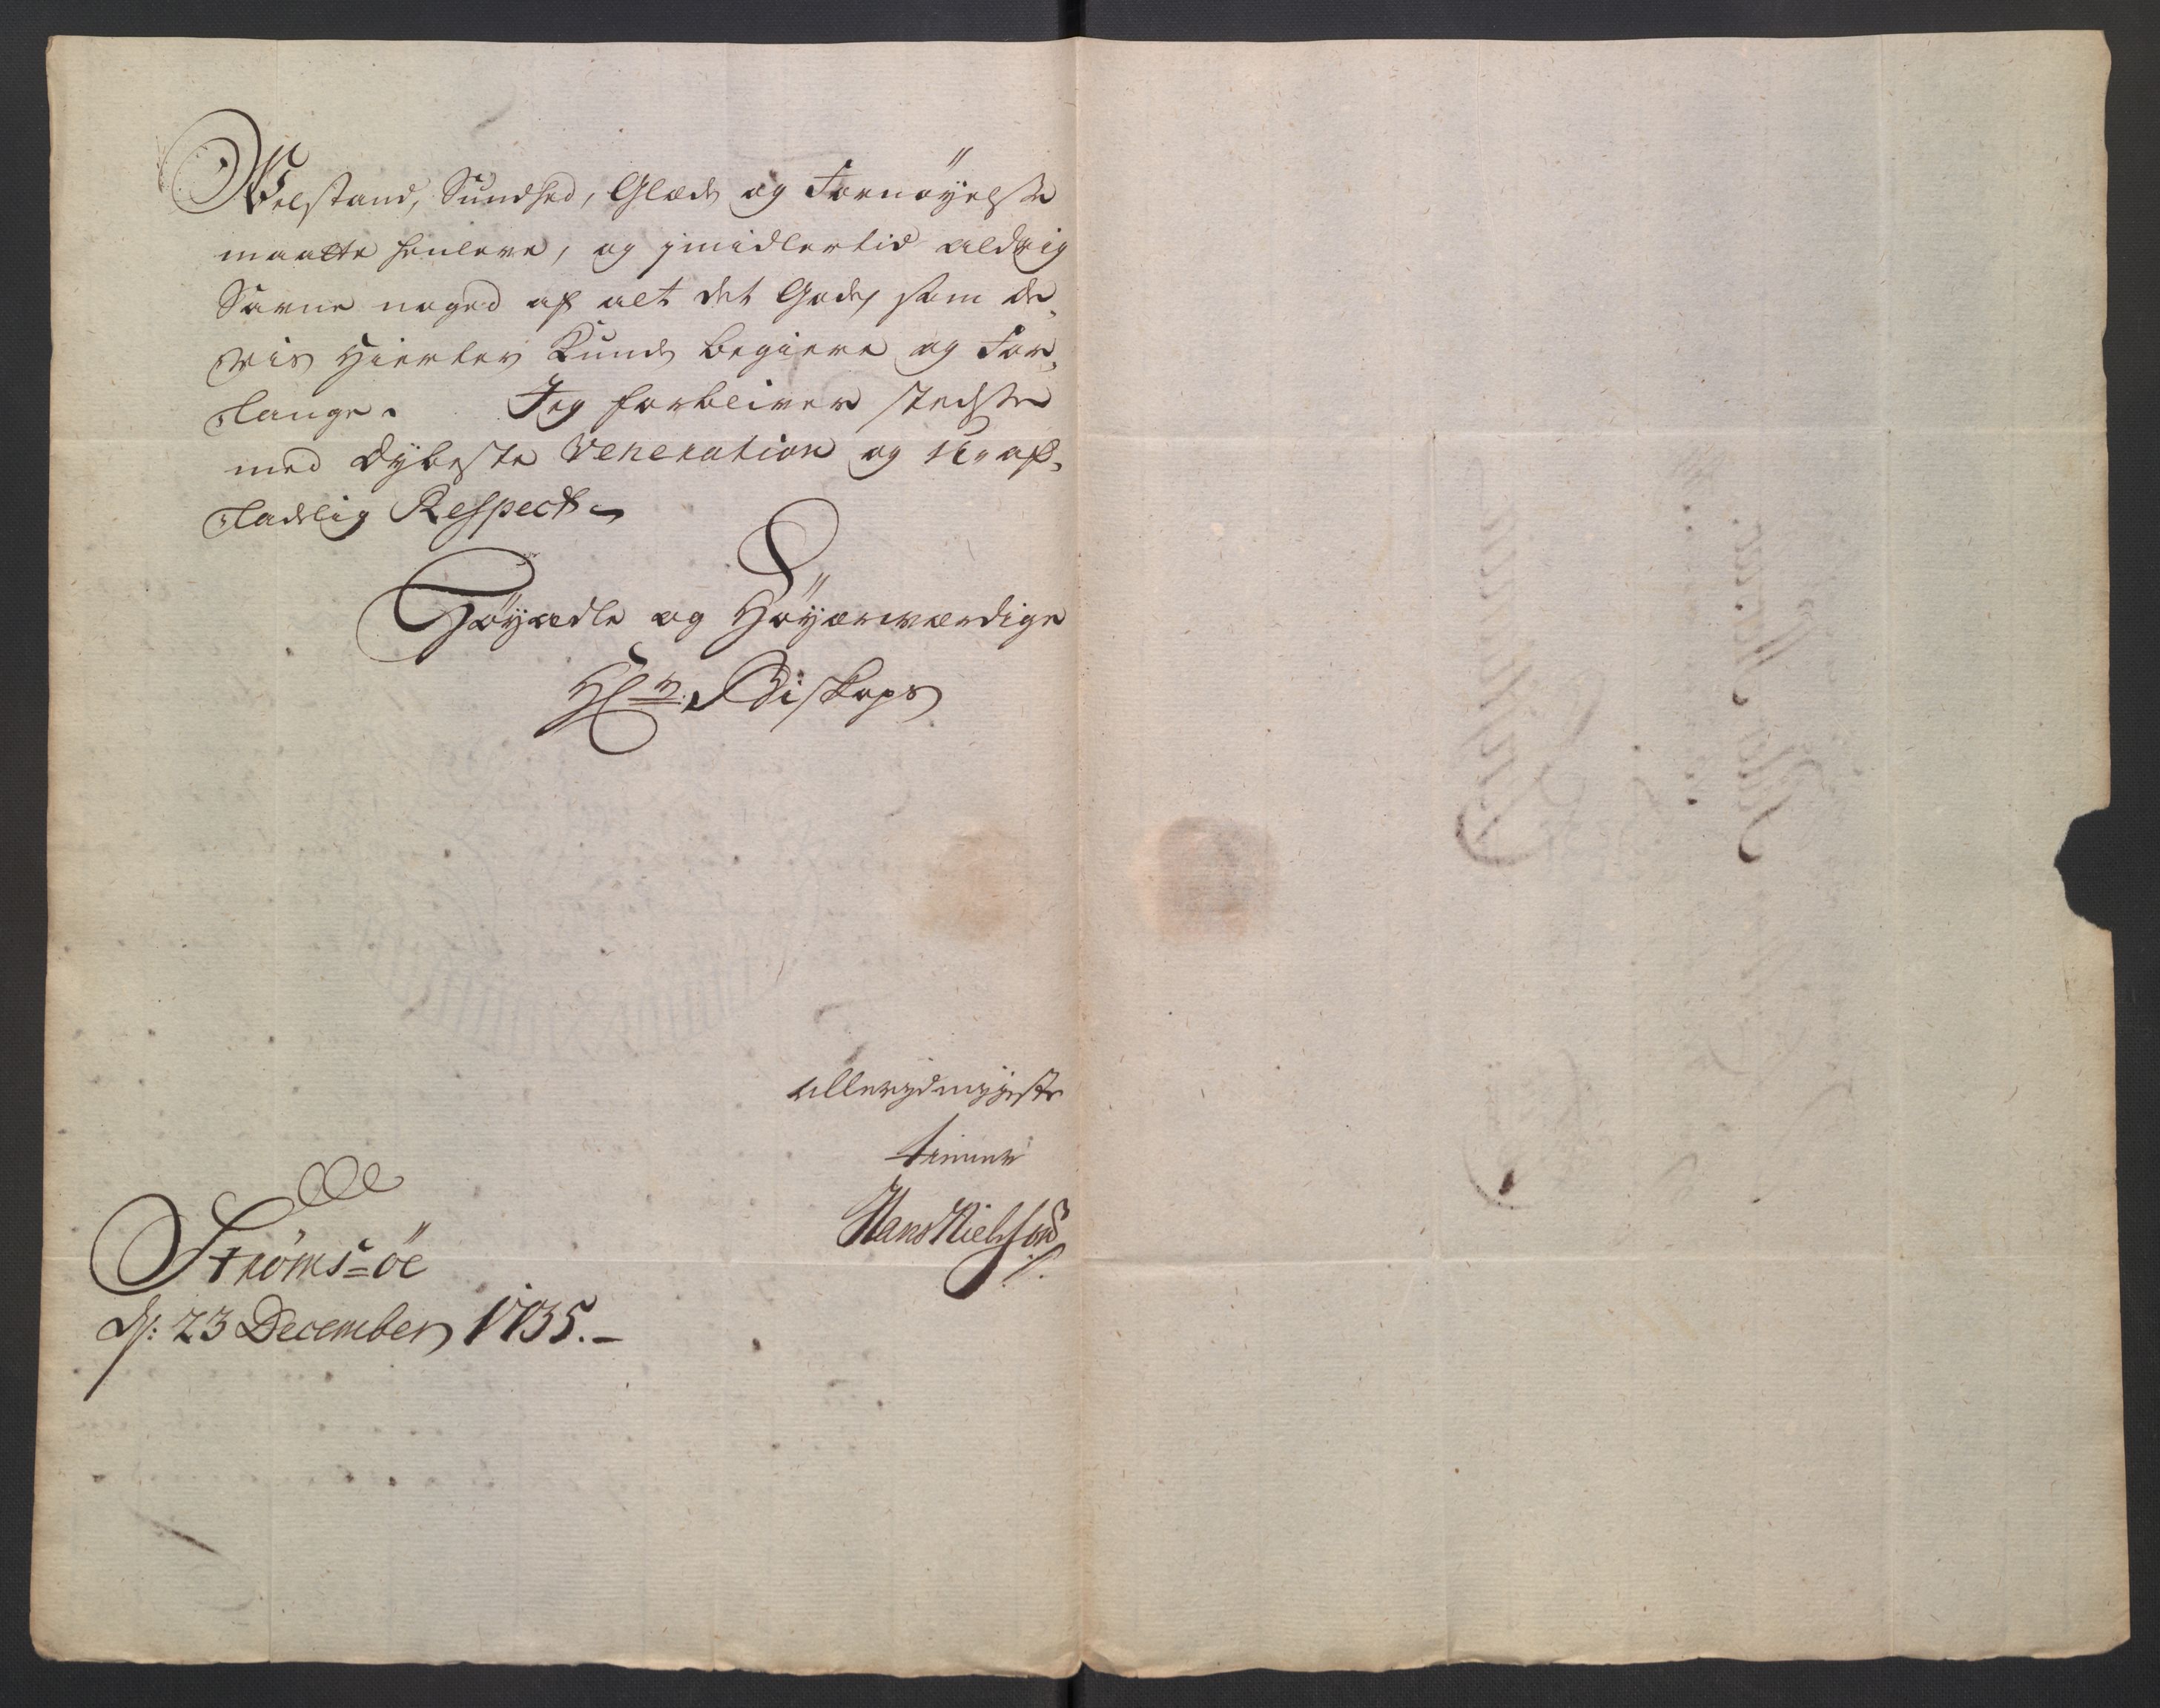 Velstand, Sundhed, Glæde og Fornøyelse
maatte henleve, og jmidlertid aldrig
Savne noged af alt det Gode, som de¬
ris Hierter Kunde begiere og For¬
lange. Jeg forbliver stedse
med dybeste Veneration og Uaf¬
ladelig Respect
Høyædle og Høyærværdige
Hr. Biskops
allerydmygeste
tiener
Hans Nielssøn
Strøms=öe
d: 23 December 1735.